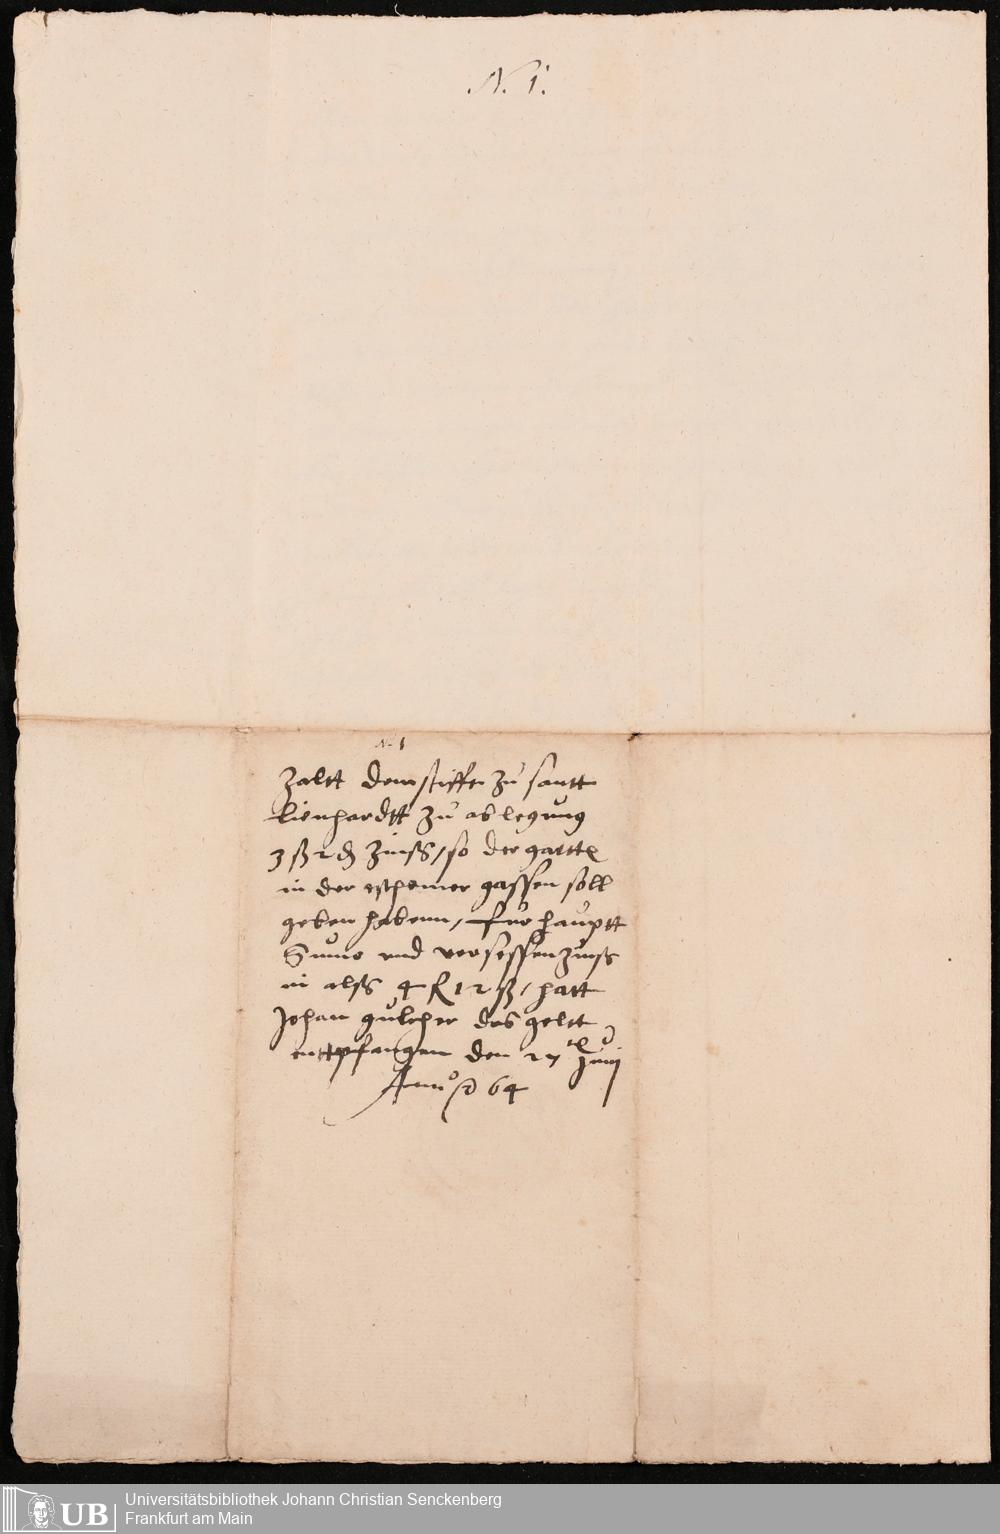 N. 1.
N. 1
Zaltt dem stifft zu santt
Lienhardtt zu ablegung
3 ß 2 ₰ Zinsß / so der gartte
in der eschemer gassen soll
geben habenn / fur hauptt
Summ vnd versessen zinsß
in alsß 4 fl 12 ß / hatt
Johan gulcher das geltt
enttpfangen den 27 Junij
Anno 64
UB
Universitätsbibliothek Johann Christian Senckenberg
Frankfurt am Main